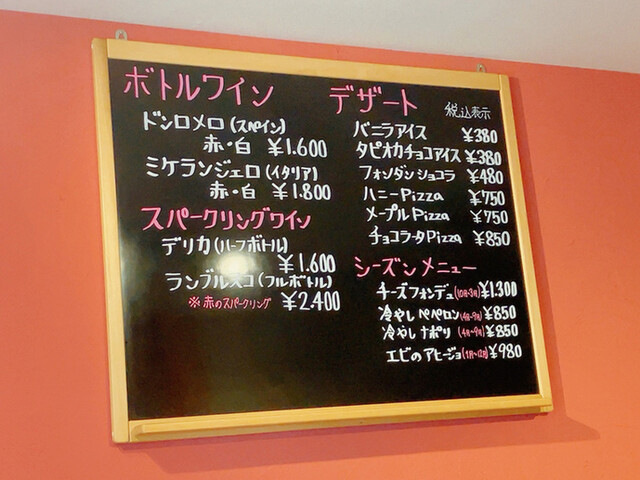 ボトルワイン
ドンロメロ(スペイン)
赤・白 ¥1.600
ミケランジェロ(イタリア)
赤・白 ¥1.800
スパークリングワイン
デリカ(ハーフボトル)
¥1.600
ランブルスコ(フルボトル)
※赤のスパークリング ¥2.400
デザート 税込表示
バニラアイス ¥380
タピオカチョコアイス ¥380
フォンダンショコラ ¥480
ハニーPizza ¥750
メープルPizza ¥750
チョコラータPizza ¥850
シーズンメニュー
チーズフォンデュ(10月~3月) ¥1.300
冷やしペペロン(4月~9月) ¥850
冷やしナポリ(4月~9月) ¥850
エビのアヒージョ(1月~12月) ¥980